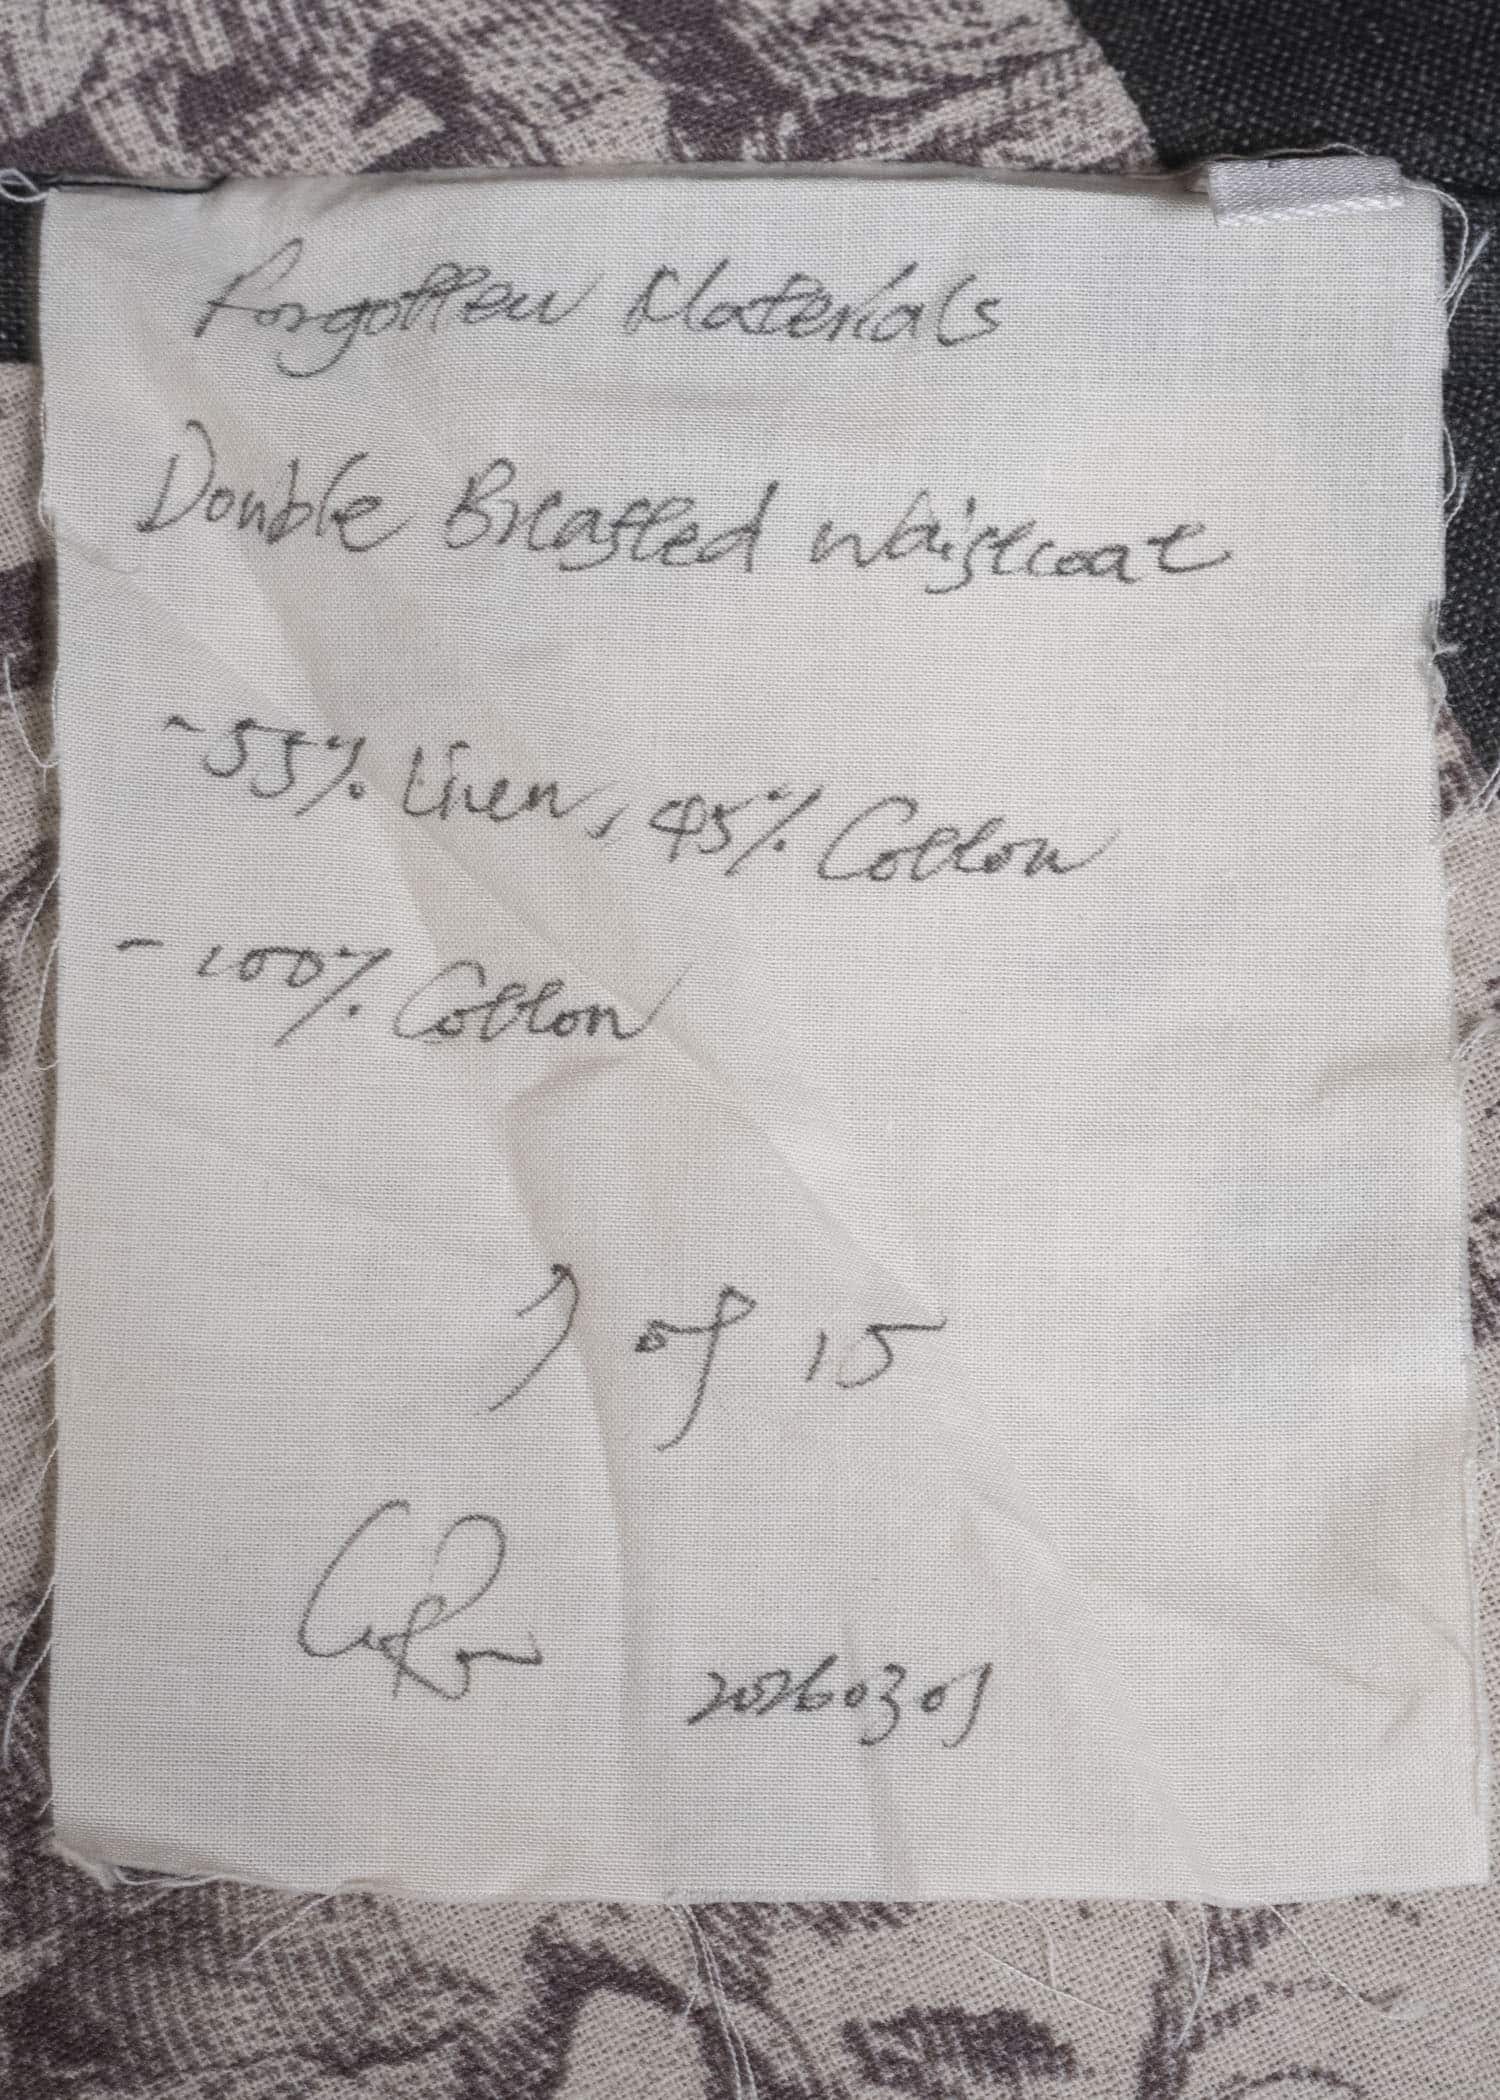 Forgotten Materials
Double Breasted Waistcoat
- 55% Linen, 45% Cotton
- 100% Cotton
of 15
20260301